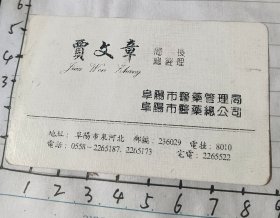 賈文章 局長
總經理
Jia Wen Zhang
阜陽市醫藥管理局
阜陽市醫藥總公司
地址: 阜陽市泉河北 郵編: 236029 電掛: 8010
電話: 0558-2265187. 2265173 宅電: 2265522
1 2 3 4 5 6 7 8 9